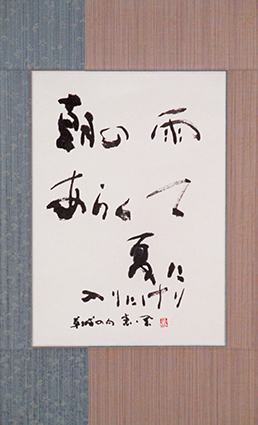 朝の雨
あらくて
夏に
入りにけり
草城の句